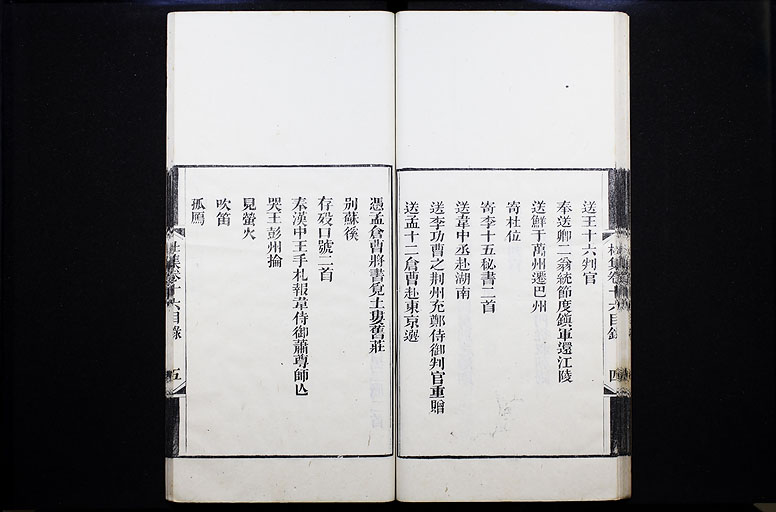 送王十六判官
奉送卿二翁統節度鎮軍還江陵
送鮮于萬州遷巴州
寄杜位
寄李十五秘書二首
送韋中丞赴湖南
送李功曹之荆州充鄭侍御判官重贈
送孟十二倉曹赴東京選
杜集卷十六目錄
四
憑孟倉曹將書覓土婁舊莊
別蘇徯
存殁口號二首
奉漢中王手札報韋侍御蕭尊師亡
哭王彭州掄
見螢火
吹笛
孤鴈
杜集卷十六目錄
五